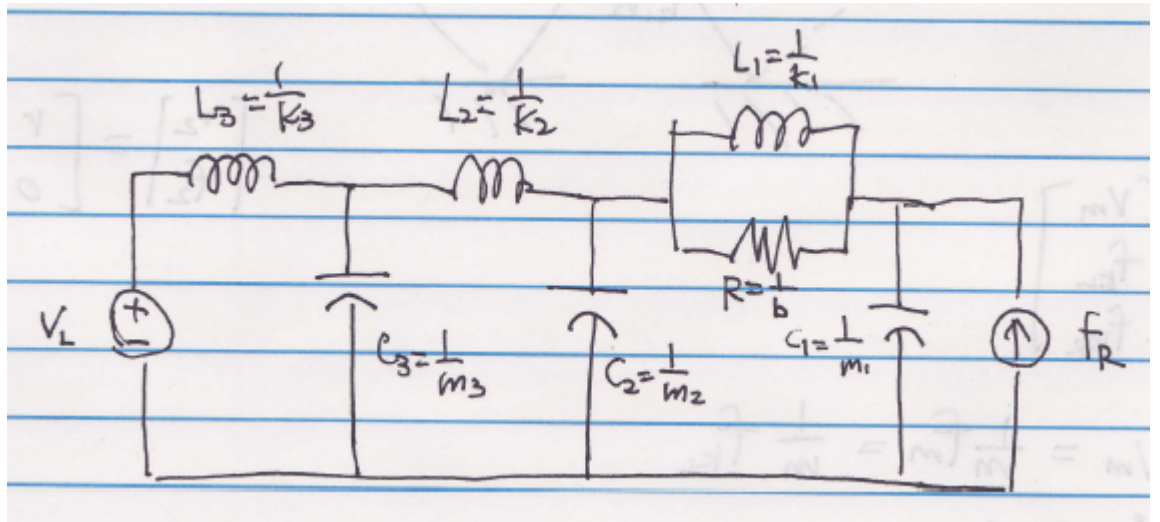 L₃ = 1/K₃
L₂ = 1/K₂
L₁ = 1/K₁
R = 1/b
V_L
+
-
C₃ = 1/m₃
C₂ = 1/m₂
C₁ = 1/m₁
F_R